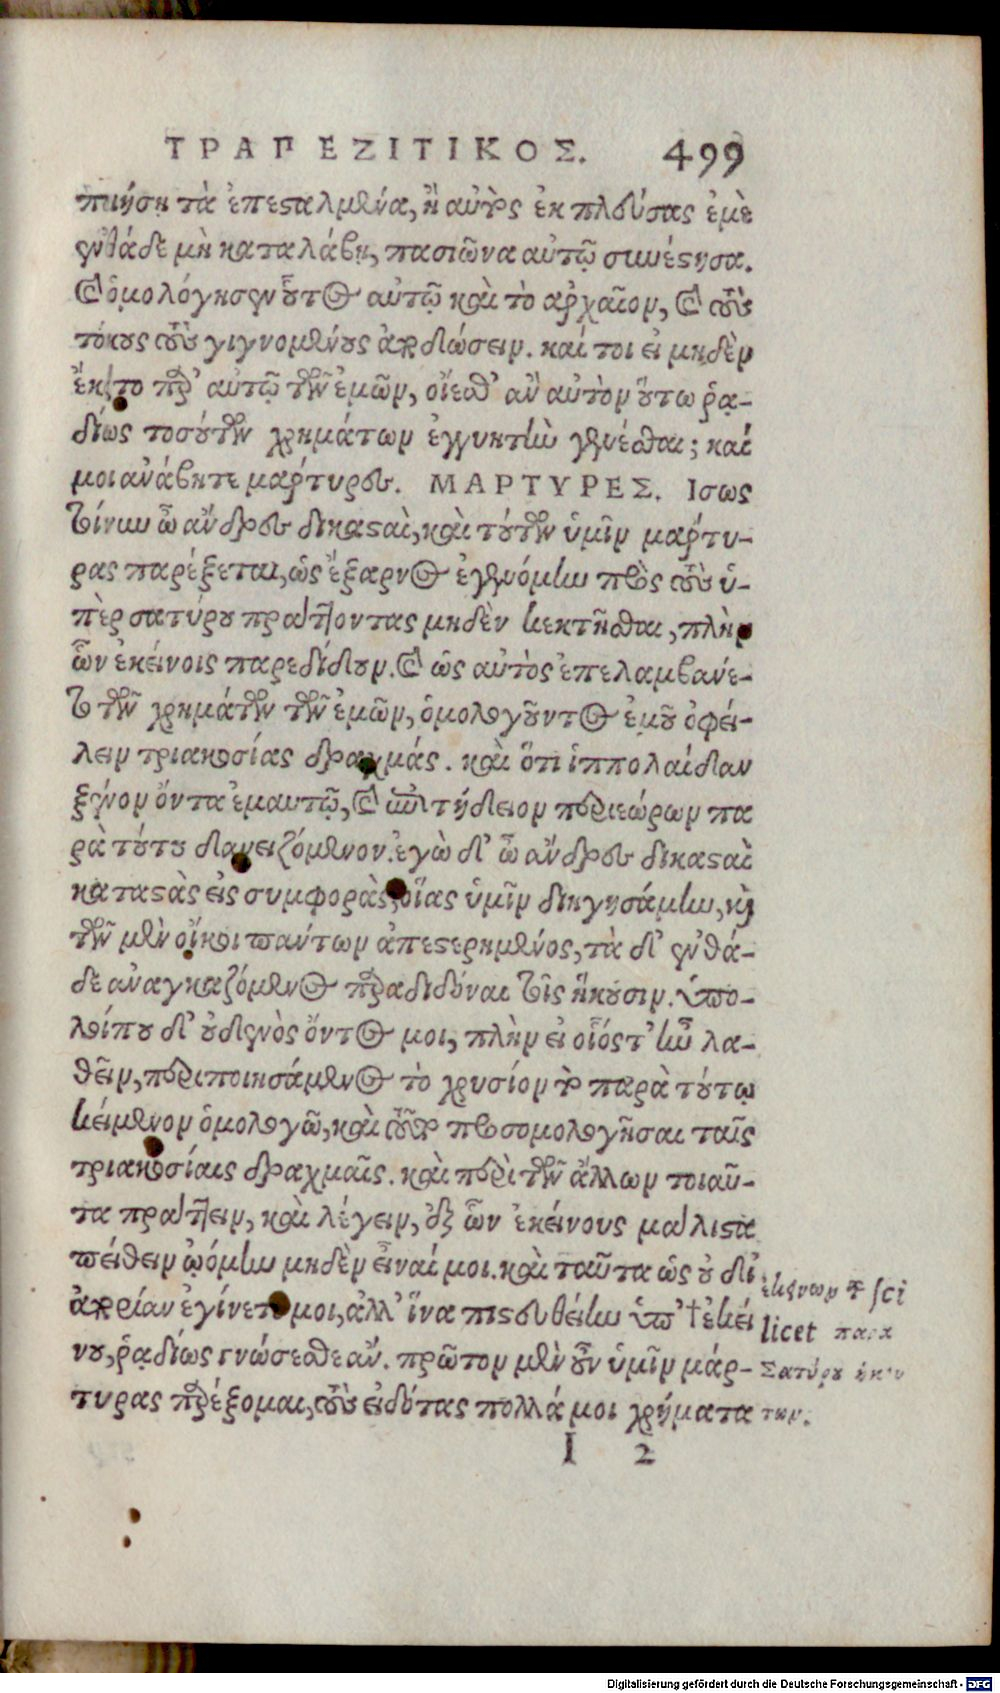 ΤΡΑΠΕΖΙΤΙΚΟΣ. 499
ποιήση τὰ ἐπεσταλμένα, ἢ αὐτὸς ἐκπλούσας ἐμὲ
ἐνθάδε μὴ καταλάβῃ, πασιῶνα αὐτῷ συνέστησα.
καὶ ὁμολόγησεν οὗτος αὐτῷ καὶ τὸ ἀρχαῖον, καὶ τοὺς
τόκους τοὺς γιγνομένους ἀποδώσειν. καί τοι εἰ μηδὲν
ἔκειτο παρ' αὐτῷ τῶν ἐμῶν, οἴεσθ' ἂν αὐτὸν οὕτω ῥα-
δίως τοσούτων χρημάτων ἐγγυητὴν γενέσθαι; καί
μοι ἀνάβητε μάρτυρες. ΜΑΡΤΥΡΕΣ. Ισως
τοίνυν ὦ ἄνδρες δικασταὶ, καὶ τούτων ὑμῖν μάρτυ-
ρας παρέξεται, ὡς ἔξαρνος ἐγενόμην πρὸς τοὺς ὑ-
πὲρ σατύρου πράττοντας μηδὲν κεκτῆσθαι, πλὴν
ὧν ἐκείνοις παρεδίδουν. καὶ ὡς αὐτὸς ἐπελαμβάνε-
το τῶν χρημάτων τῶν ἐμῶν, ὁμολογοῦντος ἐμοῦ ὀφεί-
λειν τριακοσίας δραχμάς. καὶ ὅτι ἱππολαΐδαν
ξένον ὄντα ἐμαυτῷ, καὶ ἐπιτήδειον περιεώρων πα
ρὰ τούτου δανειζόμενον. ἐγὼ δ' ὦ ἄνδρες δικασταὶ
καταστὰς εἰς συμφορὰς, οἵας ὑμῖν διηγησάμην, καὶ
τῶν μὲν οἴκοι πάντων ἀπεστερημένος, τὰ δ' ἐνθά-
δε ἀναγκαζόμενος παραδιδόναι τοῖς ἥκουσιν. ὑπο-
λοίπου δ' οὐδενὸς ὄντος μοι, πλὴν εἰ οἷός τ' ἦν λα-
θεῖν, περιποιησάμενος τὸ χρυσίον τὸ παρὰ τούτῳ
κείμενον ὁμολογῶ, καὶ τούτῳ προσομολογῆσαι ταῖς
τριακοσίαις δραχμαῖς. καὶ περὶ τῶν ἄλλων τοιαῦ-
τα πράττειν, καὶ λέγειν, ἐξ ὧν ἐκείνους μάλιστα
πείθειν ᾠόμην μηδὲν εἶναί μοι. καὶ ταῦτα ὡς οὐ δι'
ἀπορίαν ἐγίνετό μοι, ἀλλ' ἵνα πιστευθείην ὑπ' † ἐκεί
νου, ῥᾳδίως γνώσεσθε ἄν. πρῶτον μὲν οὖν ὑμῖν μάρ-
τυρας παρέξομαι, τοὺς εἰδότας πολλά μοι χρήματα
ἐκείνων τ sci
licet παρα
Σατύρου ἡκόν
των.
I 2
Digitalisierung gefördert durch die Deutsche Forschungsgemeinschaft - DFG